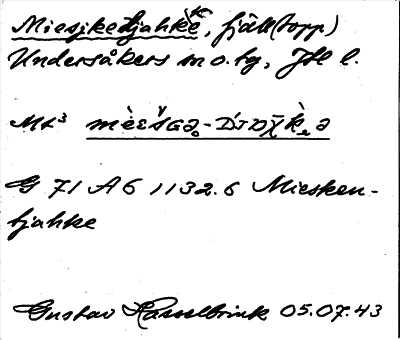 Miesjketjahkē, fjäll(topp)
Undersåkers sn o. tg, Jtl l.
ML³
G 71 A6 1132.6 Miesken-
tjahke
Gustav Hasselbrink 05.07.43